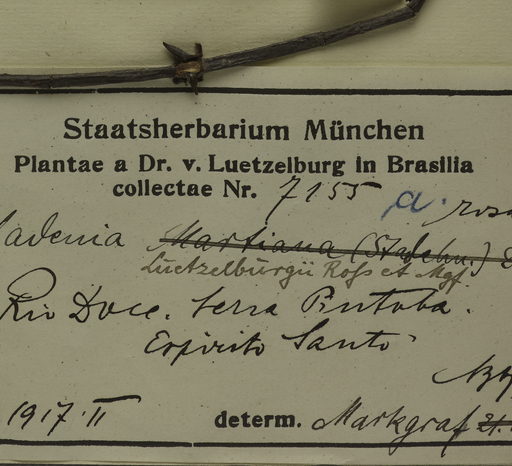 Staatsherbarium München
Plantae a Dr. v. Luetzelburg in Brasilia
collectae Nr. 7155 a. rosa
ladenia Martiana (Stadelm.)
Luetzelburgii Ross et Mgf.
Rio Doce. Serra
Espirito Santo
1917. II determ. Markgraf 21.